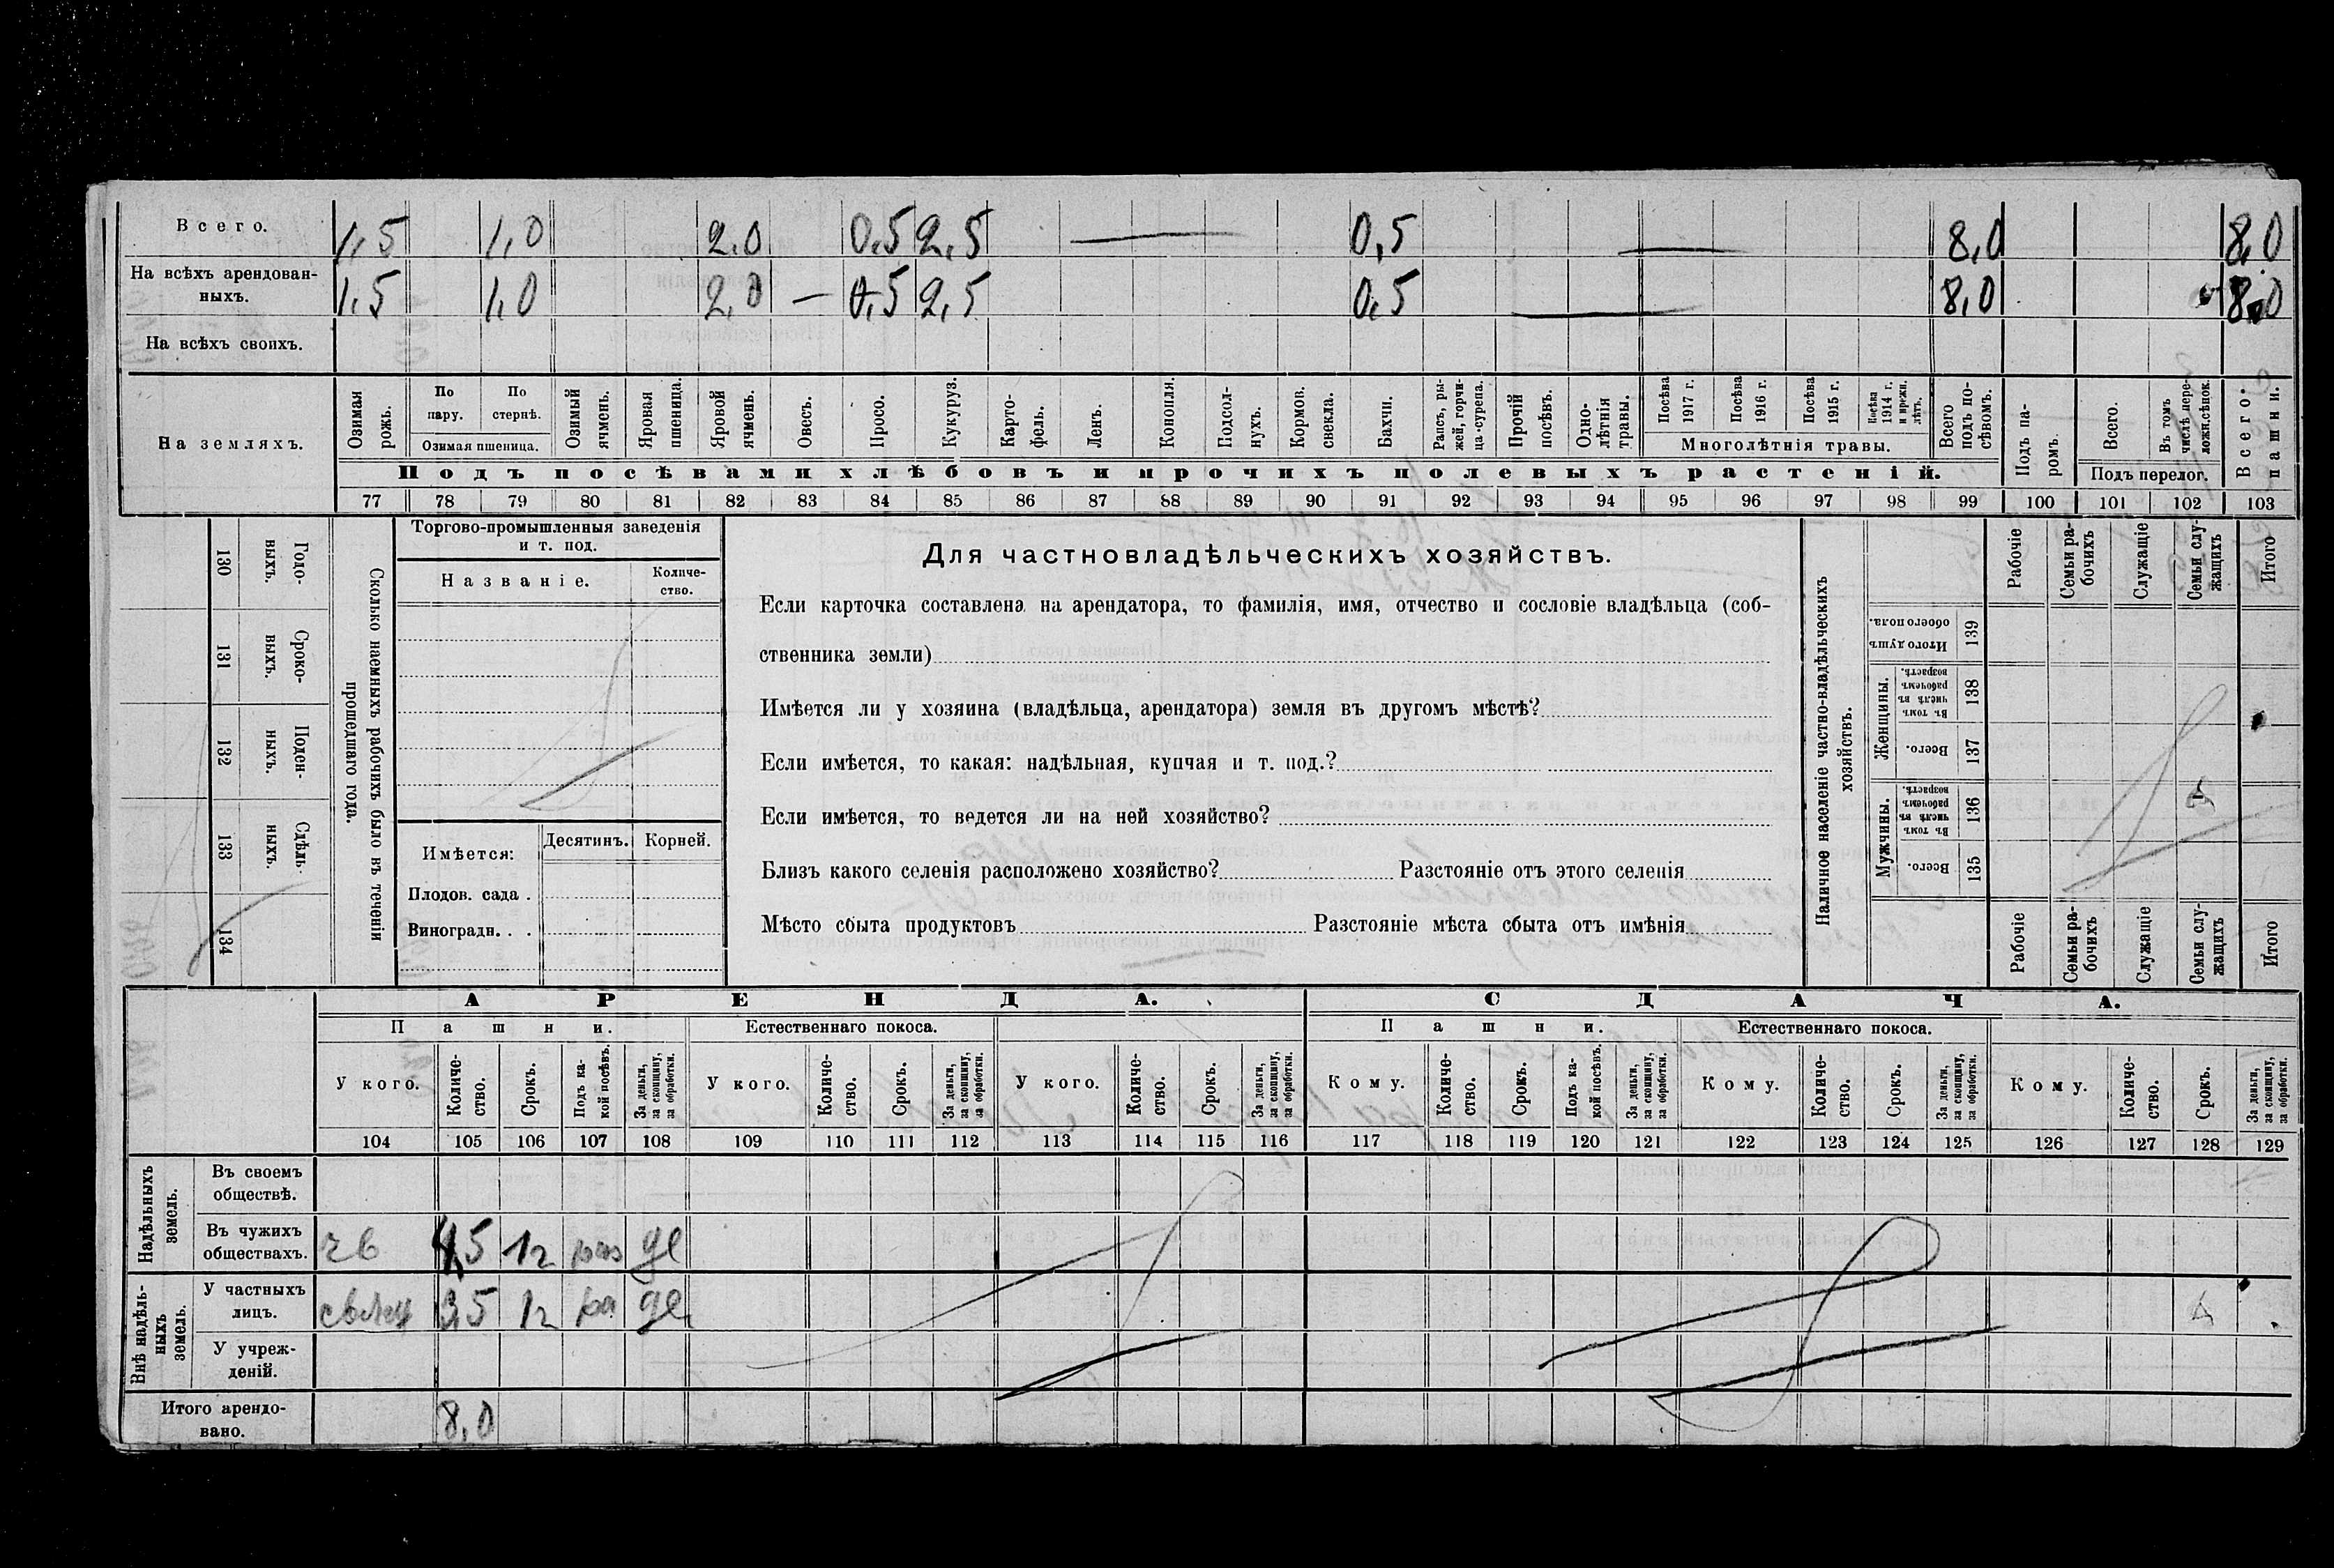 Всего. 1,5 1,0 2,0 0,5 2,5 — 0,5 — 8,0 8,0
На всѣхъ арендован-
ныхъ. 1,5 1,0 2,0 — 0,5 2,5 0,5 — 8,0 8,0
На всѣхъ своихъ.
На земляхъ.
Озимая рожь.
По пару.
По стернѣ.
Озимая пшеница.
Озимый ячмень.
Яровая пшеница.
Яровой ячмень.
Овесъ.
Просо.
Кукуруз.
Карто-
фель.
Ленъ.
Конопля.
Подсол-
нухъ.
Кормов.
свекла.
Бахчи.
Рапсъ, ры-
жей, горчи-
ца-сурепа.
Прочій
посѣвъ.
Одно-
лѣтнія
травы.
Посѣва
1917 г.
Посѣва
1916 г.
Посѣва
1915 г.
Посѣва
1914 г.
и прежн.
лѣтъ.
Многолѣтнія травы.
Всего
подъ по-
сѣвомъ.
Подъ па-
ромъ.
Всего.
Въ томъ
числѣ пере-
ложн.сѣнок.
Подъ перелог.
Всего
пашни.
Подъ посѣвами хлѣбовъ и прочихъ полевыхъ растеній.
77 78 79 80 81 82 83 84 85 86 87 88 89 90 91 92 93 94 95 96 97 98 99 100 101 102 103
130 Годо-
выхъ.
131 Сроко-
выхъ.
132 Поден-
ныхъ.
133 Сдѣль-
ныхъ.
134
Сколько наемныхъ рабочихъ было въ теченіи
прошедшаго года.
Торгово-промышленныя заведенія
и т. под.
Названіе.
Количе-
ство.
Имѣется:
Десятинъ.
Корней.
Плодов. сада .
Виноградн. . .
Для частновладѣльческихъ хозяйствъ.
Если карточка составлена на арендатора, то фамилія, имя, отчество и сословіе владѣльца (соб-
ственника земли)
Имѣется ли у хозяина (владѣльца, арендатора) земля въ другомъ мѣстѣ?
Если имѣется, то какая: надѣльная, купчая и т. под.?
Если имѣется, то ведется ли на ней хозяйство?
Близъ какого селенія расположено хозяйство? Разстояніе отъ этого селенія
Мѣсто сбыта продуктовъ Разстояніе мѣста сбыта отъ имѣнія
Наличное населеніе частно-владѣльческихъ
хозяйствъ.
Рабочіе
Семьи ра-
бочихъ
Служащіе
Семьи слу-
жащихъ
Итого
Итого душъ
обоего пола.
139
Женщины.
Въ томъ
числѣ въ
рабочемъ
возрастѣ.
138
Всего.
137
Мужчины.
Въ томъ
числѣ въ
рабочемъ
возрастѣ.
136
Всего.
135
Рабочіе
Семьи ра-
бочихъ
Служащіе
Семьи слу-
жащихъ
Итого
АРЕНДА.
СДАЧА.
Пашни.
Естественнаго покоса.
Пашни.
Естественнаго покоса.
У кого.
Количе-
ство.
Срокъ.
Подъ ка-
кой посѣвъ.
За деньги,
за скопщину,
за обработки.
У кого.
Количе-
ство.
Срокъ.
За деньги,
за скопщину,
за обработки.
У кого.
Количе-
ство.
Срокъ.
За деньги,
за скопщину,
за обработки.
Кому.
Количе-
ство.
Срокъ.
Подъ ка-
кой посѣвъ.
За деньги,
за скопщину,
за обработки.
Кому.
Количе-
ство.
Срокъ.
За деньги,
за скопщину,
за обработки.
Кому.
Количе-
ство.
Срокъ.
За деньги,
за скопщину,
за обработки.
104 105 106 107 108 109 110 111 112 113 114 115 116 117 118 119 120 121 122 123 124 125 126 127 128 129
Надѣльныхъ
земель.
Въ своемъ
обществѣ.
Въ чужихъ
обществахъ. 4,5 1г де
Внѣ надѣль-
ныхъ
земель.
У частныхъ
лицъ. 3,5 1г де
У учреж-
деній.
Итого арендо-
вано. 8,0